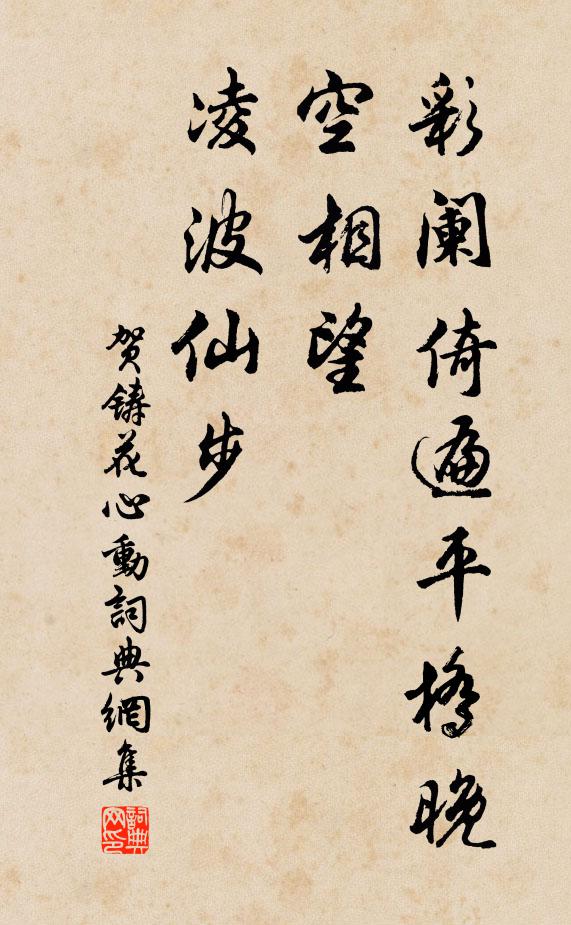 彩阑倚遍平桥晚
空相望
凌波仙步
贺鑄花心動詞典網集
詞典
网印